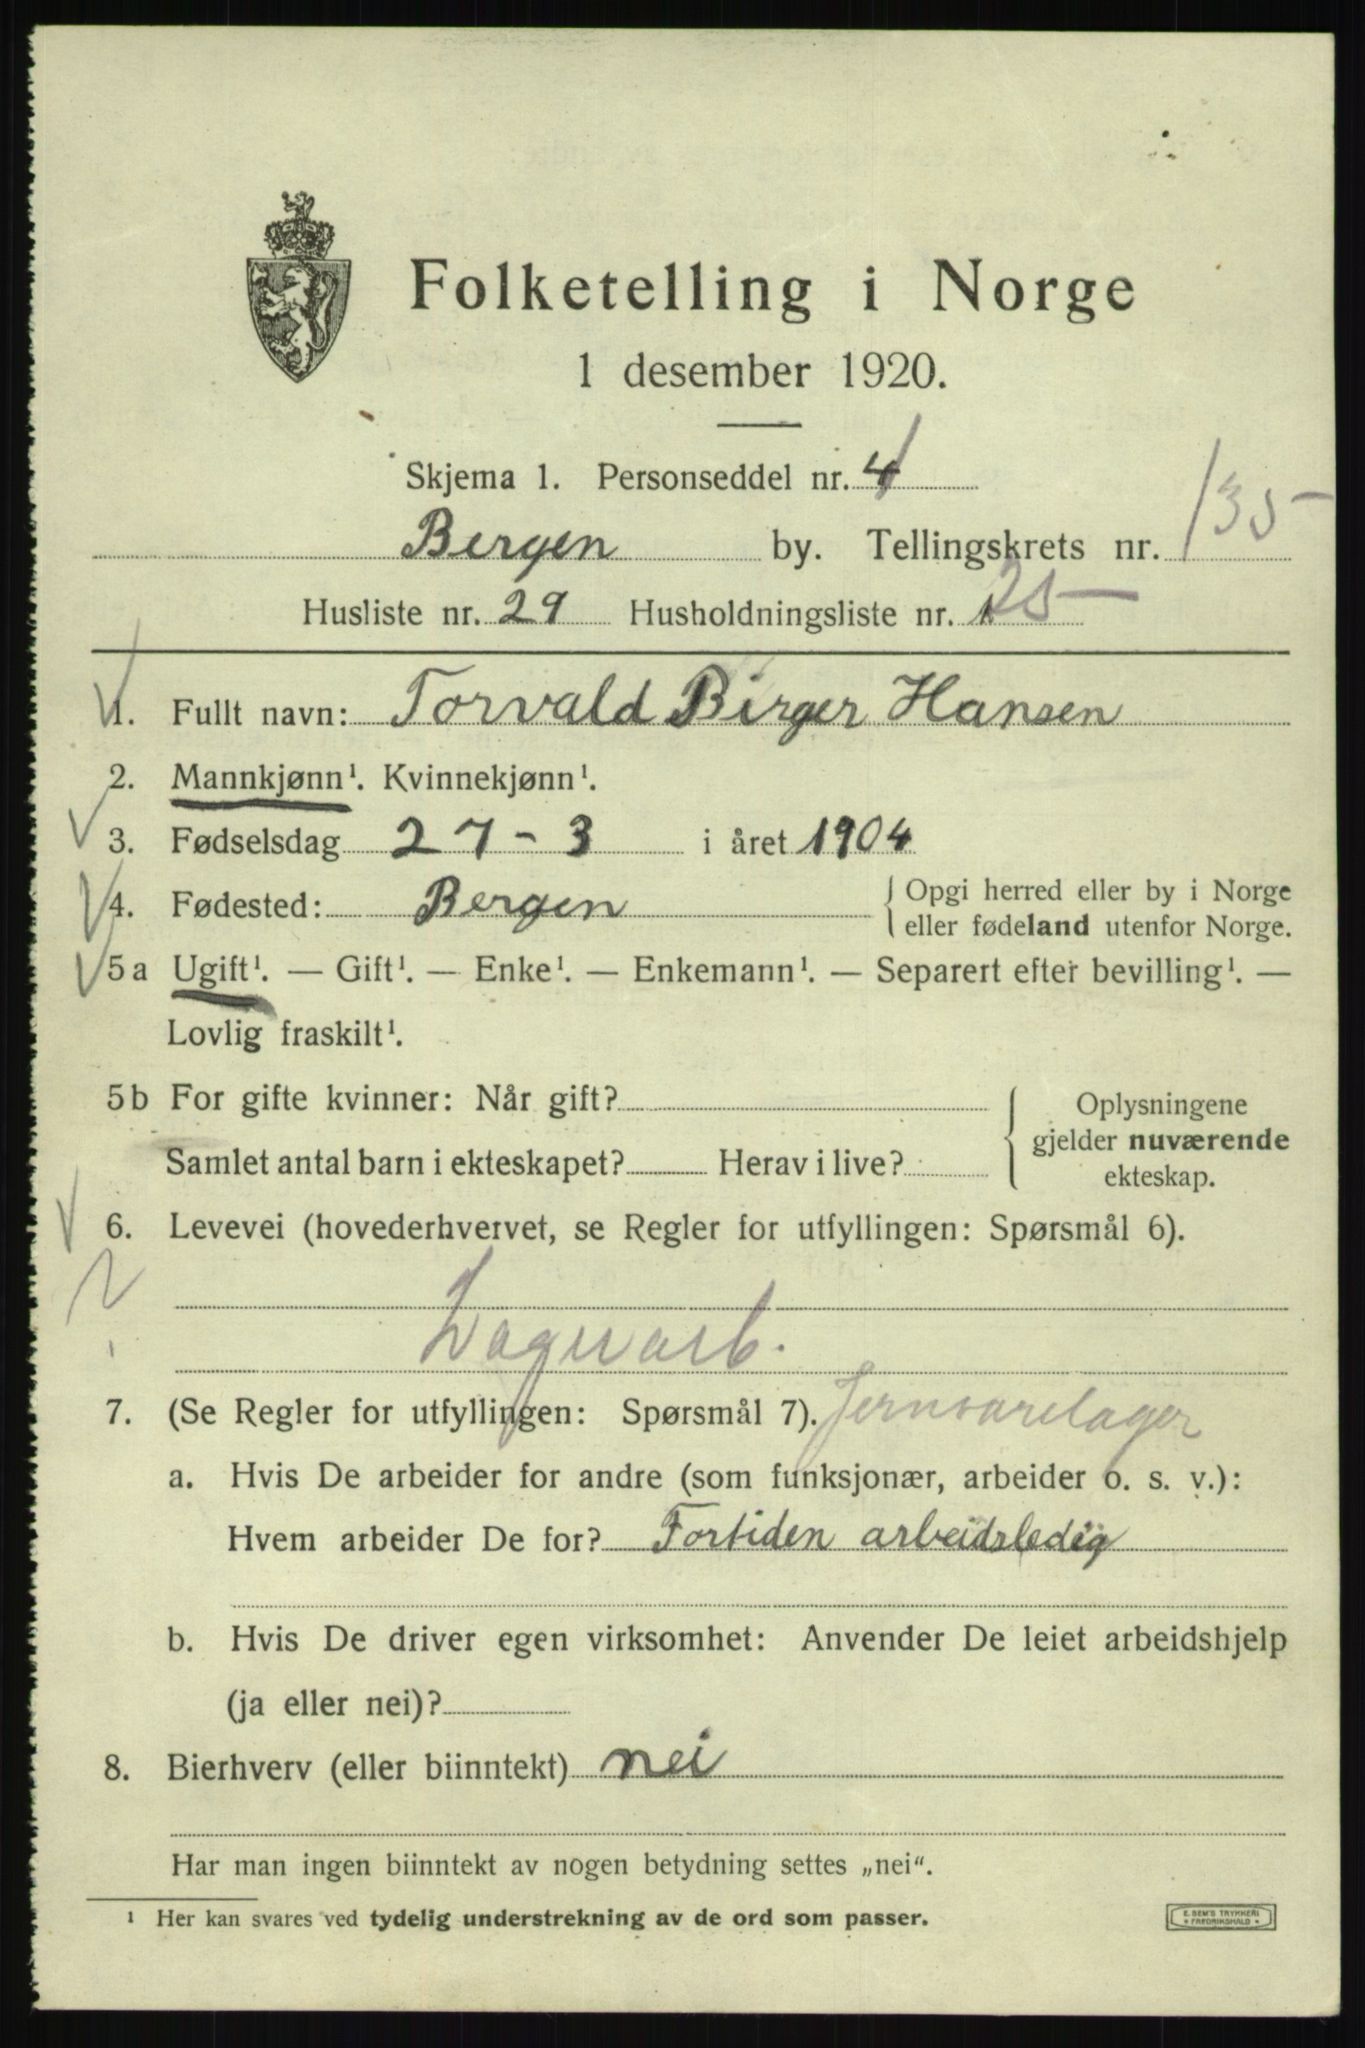 Folketelling i Norge
1 desember 1920.
Skjema 1. Personseddel nr. 4
Bergen by. Tellingskrets nr. 135
Husliste nr. 29 Husholdningsliste nr. 25
1. Fullt navn: Torvald Birger Hansen
2. Mannkjønn¹. Kvinnekjønn¹.
3. Fødselsdag 27-3 i året 1904
4. Fødested: Bergen { Opgi herred eller by i Norge
eller fødeland utenfor Norge.
5a Ugift¹. — Gift¹. — Enke¹. — Enkemann¹. — Separert efter bevilling¹. —
Lovlig fraskilt¹.
5b For gifte kvinner: Når gift? { Oplysningene
gjelder nuværende
Samlet antal barn i ekteskapet? Herav i live? ekteskap.
6. Levevei (hovederhvervet, se Regler for utfyllingen: Spørsmål 6).
Lagerarb.
7. (Se Regler for utfyllingen: Spørsmål 7). Jernvarelager
a. Hvis De arbeider for andre (som funksjonær, arbeider o. s. v.):
Hvem arbeider De for? Fortiden arbeidsledig
b. Hvis De driver egen virksomhet: Anvender De leiet arbeidshjelp
(ja eller nei)?
8. Bierhverv (eller biinntekt) nei
Har man ingen biinntekt av nogen betydning settes „nei“.
¹ Her kan svares ved tydelig understrekning av de ord som passer.
E. SEM'S TRYKKERI
* FREDRIKSHALD *